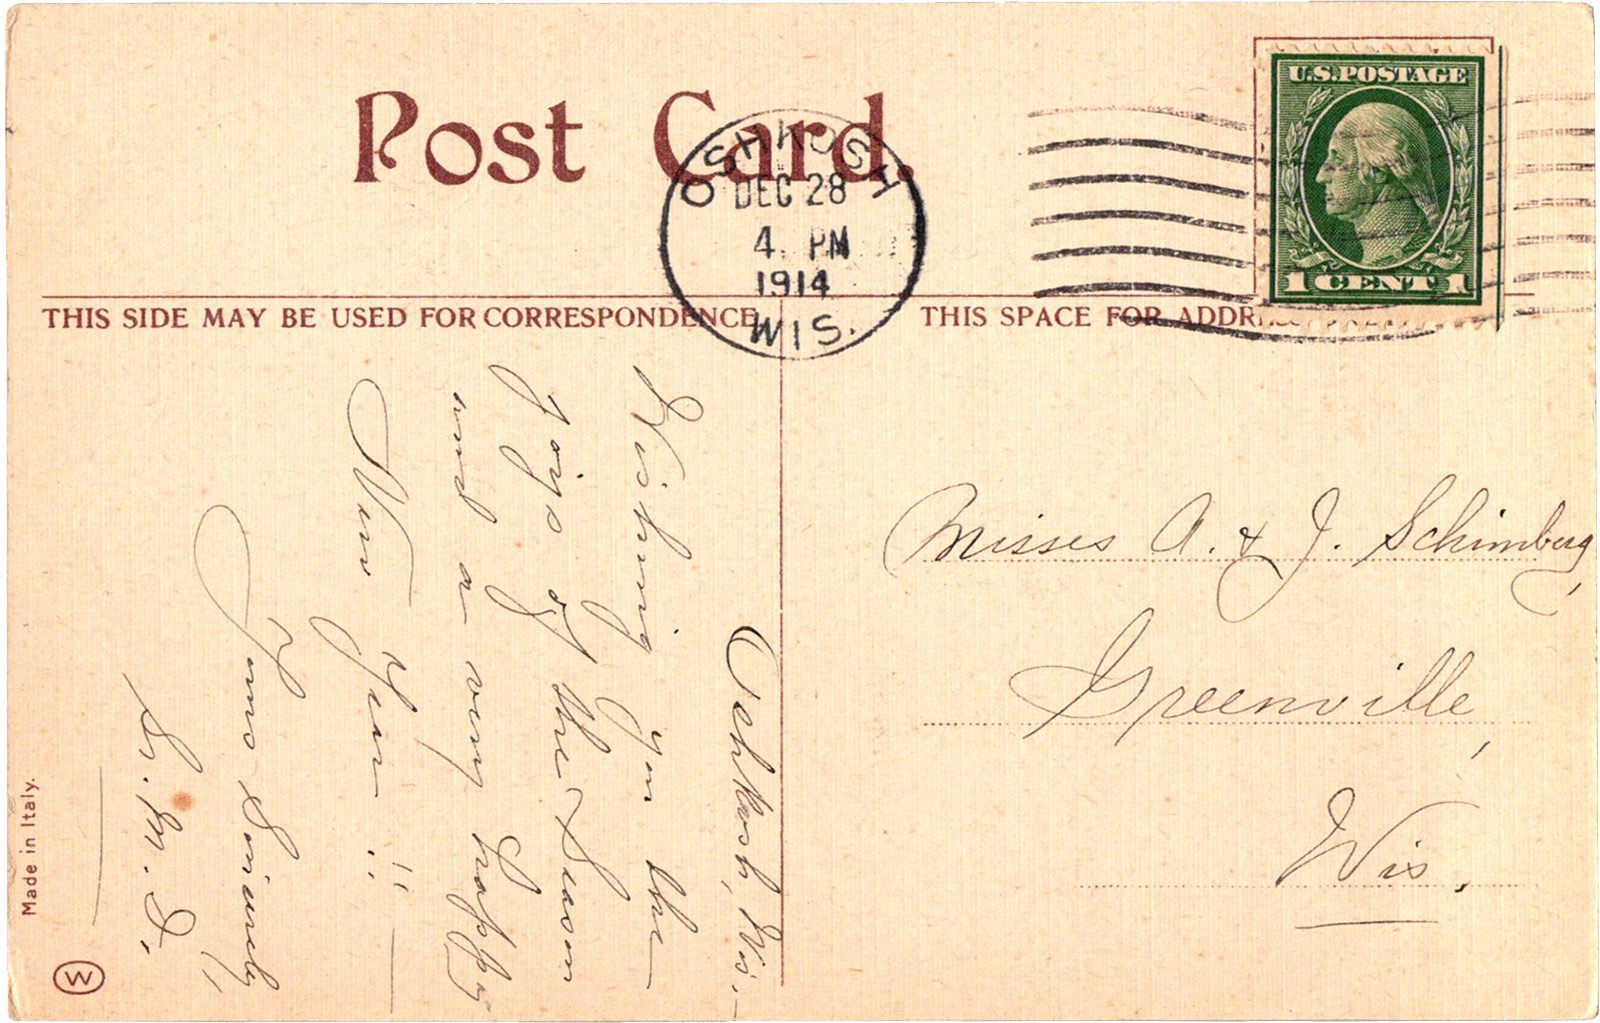 Post Card.
OSHKOSH
DEC 28
4 PM
1914
WIS.
U.S. POSTAGE
1 CENT 1
THIS SIDE MAY BE USED FOR CORRESPONDENCE
THIS SPACE FOR ADDRESS
Oshkosh, Wis.
Wishing you the
joys of the Season
and a very happy
New Year!!
Yours Sincerely,
Sr. M. I.
Misses A. & J. Schimberg,
Greenville,
Wis.
Made in Italy.
W